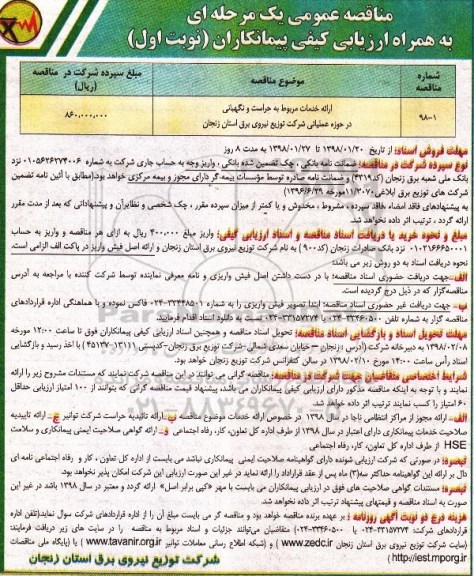 مناقصه عمومی یک مرحله ای
به همراه ارزیابی کیفی پیمانکاران (نوبت اول)
شماره مناقصه
موضوع مناقصه
مبلغ سپرده شرکت در مناقصه (ریال)
۹۸-۱
ارائه خدمات مربوط به حراست و نگهبانی
در حوزه عملیاتی شرکت توزیع نیروی برق استان زنجان
۸۶۰,۰۰۰,۰۰۰
مهلت فروش اسناد: از تاریخ ۱۳۹۸/۰۱/۲۰ تا ۱۳۹۸/۰۱/۲۷ به مدت ۸ روز
نوع سپرده شرکت در مناقصه: ضمانت نامه بانکی ، چک تضمین شده بانکی ، واریز وجه به حساب جاری شرکت به شماره ۰۱۰۵۶۲۶۲۷۴۰۰۶ نزد
بانک ملی شعبه برق زنجان (کد۴۲۱۹) و ضمانت نامه صادره توسط مؤسسات بیمه گر دارای مجوز و بیمه مرکزی خواهد بود(مطابق با آئین نامه تضمین
شرکت های توزیع برق ابلاغی ۱۱/۷۰۷۰مورخه ۱۳۹۶/۶/۲۹)
به پیشنهادهای فاقد امضاء ،فاقد سپرده ، مشروط ، مخدوش و یا کمتر از میزان سپرده مقرر ، چک شخصی و نظایرآن و پیشنهاداتی که بعد از مدت مقرر
ارائه گردد ، ترتیب اثر داده نخواهد شد.
مبلغ و نحوه خرید یا دریافت اسناد مناقصه و اسناد ارزیابی کیفی: واریز مبلغ ۴۰۰,۰۰۰ ریال به ازای هر مناقصه و واریز به حساب
۰۱۰۲۱۶۶۶۵۰۰۰۱ نزد بانک صادرات زنجان (کد ۹۰۰ ) به نام شرکت توزیع نیروی برق استان زنجان و ارائه اصل فیش واریز در پاکت الف الزامی است.
نحوه دریافت اسناد به دو روش زیر می باشد:
الف_جهت دریافت حضوری اسناد مناقصه: با در دست داشتن اصل فیش واریزی و نامه معرفی نماینده توسط شرکت کننده با مراجعه به آدرس
مناقصه گزار که در ذیل درج گردیده است.
ب_جهت دریافت غیر حضوری اسناد مناقصه: ابتدا تصویر فیش واریزی را به شماره ۳۳۴۴۸۵۰۱-۰۲۴ فاکس نموده و با هماهنگی اداره قراردادهای
مناقصه گزار به شماره تلفن ۳۳۴۶۰۵۰۰-۰۲۴ یا ۳۳۱۵۷۲۷۴-۰۲۴ نسبت به دانلود اسناد اقدام فرمایند.
مهلت تحویل اسناد و بازگشایی اسناد مناقصه: تحویل اسناد مناقصه و همچنین اسناد ارزیابی کیفی پیمانکاران فوق تا ساعت ۱۲:۰۰ مورخه
۱۳۹۸/۰۲/۰۸ به دبیرخانه شرکت (آدرس : زنجان – خیابان سعدی شمالی شرکت توزیع نیروی برق زنجان -کدپستی ۱۳۱۱۱-۴۵۱۳۷ ) و بازگشایی
اسناد رأس ساعت ۱۴:۰۰ مورخ ۱۳۹۸/۰۲/۱۰ در سالن کنفرانس شرکت توزیع زنجان خواهد بود.
شرایط اختصاصی متقاضیان جهت شرکت در مناقصه: مناقصه گرانی می توانند در این مناقصه شرکت نمایند که مستندات مشروح زیر را ارائه
نمایند و با توجه به اینکه مناقصه مذکور دارای ارزیابی کیفی پیمانکاران می باشد، پیشنهاد قیمت مناقصه گرانی که بتوانند از ۱۰۰ امتیاز ارزیابی حداقل
۶۰ امتیاز را کسب نمایند ترتیب اثر داده خواهد شد.
الف_ ارائه مجوز از مراکز انتظامی ناجا در سال ۱۳۹۸ در خصوص ارائه خدمات موضوع مناقصه ب_ ارائه تائیدیه حراست شرکت توانیر ج_ ارائه تاییدیه
صلاحیت خدمات پیمانکاری دارای اعتبار در سال ۱۳۹۸ از طرف اداره کل تعاون، کار، رفاه اجتماعی و_ ارائه گواهی صلاحیت ایمنی پیمانکاری و سلامت
HSE از طرف اداره کل تعاون، کار، رفاه اجتماعی
تبصره: در صورتی که شرکت ارزیابی شونده دارای گواهینامه صلاحیت ایمنی پیمانکاری نباشد می بایست از اداره کل تعاون ، کار و رفاه اجتماعی نامه ای
دال بر ارائه این گواهینامه حداکثر سه(۳) ماه پس از عقد قرارداد را ارائه نماید در غیر این صورت ارزیابی این شرکت امکان پذیر نخواهد بود.
تبصره: مستندات گواهی صلاحیت های فوق در ارزیابی پیمانکاران می بایست با مهر «کپی برابر اصل» ارائه گردد و معتبر در سال ۱۳۹۸ باشد در غیر این
صورت به اسناد مناقصه و قیمتهای پیشنهاد ترتیب اثر داده نخواهد شد.
هزینه درج دو نوبت آگهی روزنامه : بر عهده برنده مناقصه خواهد بود و مناقصه گر می بایست مبلغ آن را از اداره قراردادهای شرکت سوال نماید(تلفن اداره
قراردادها: ۳۳۱۵۷۲۷۴-۰۲۴ یا ۳۳۴۶۰۵۰۰-۰۲۴) متقاضیان می‌توانند جزئیات و اسناد مربوط به مناقصه را در سایت های زیر دریافت فرمایند:
(سایت شرکت توزیع نیروی برق استان زنجان www.zedc.ir ) و (شبکه اطلاع رسانی معاملات توانیر www.tavanir.org.ir ) یا (پایگاه ملی مناقصات
http://iest.mporg.ir)
شرکت توزیع نیروی برق استان زنجان